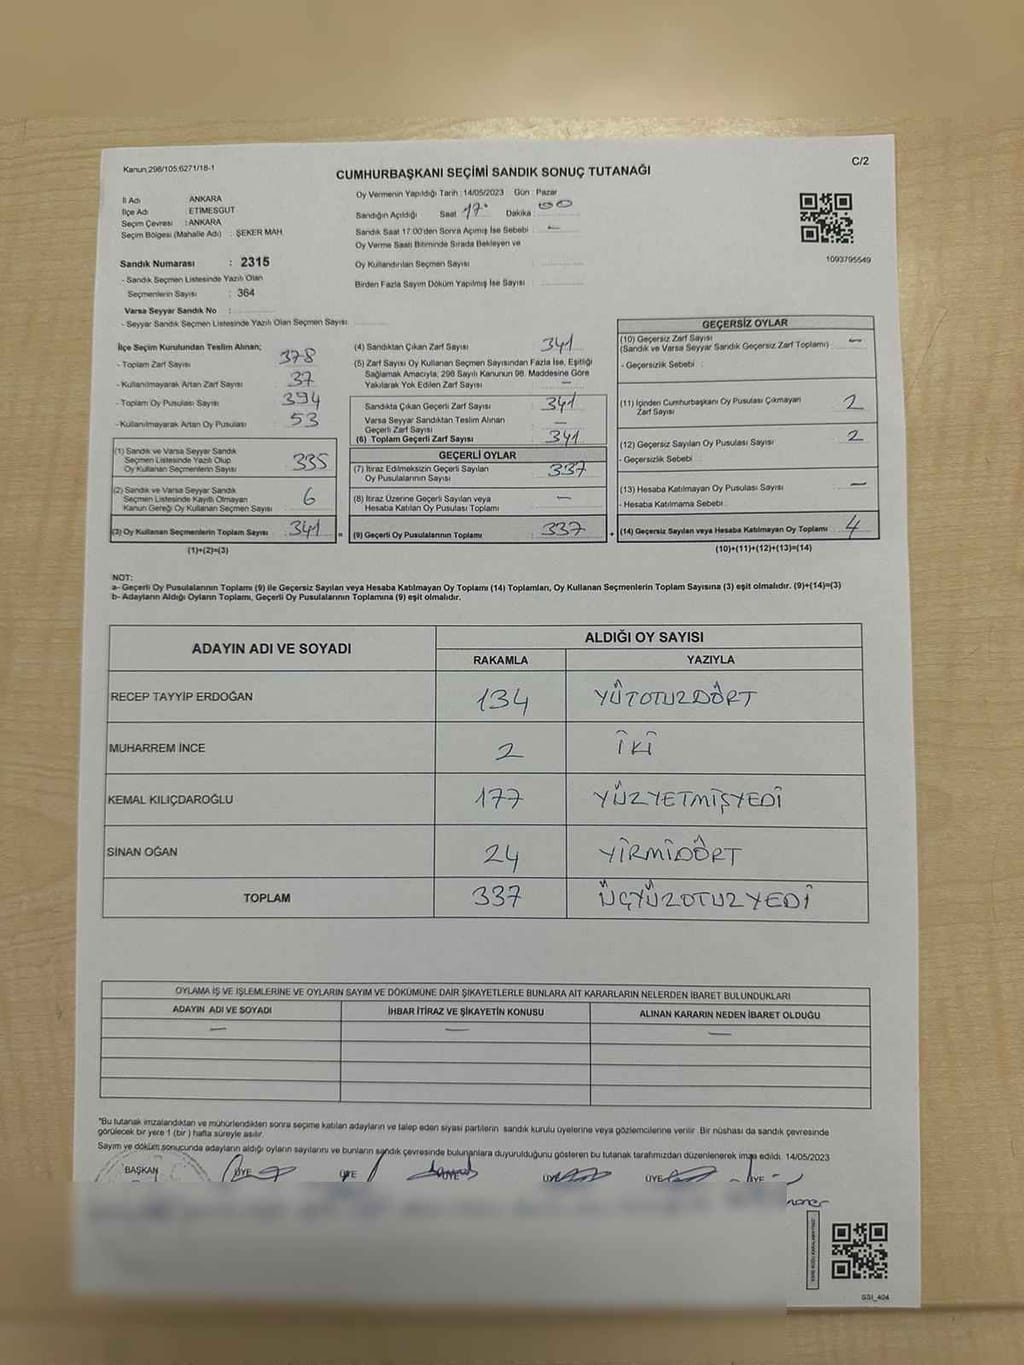 Kanun,298/105;6271/18-1
C/2
CUMHURBAŞKANI SEÇİMİ SANDIK SONUÇ TUTANAĞI
İl Adı ANKARA
İlçe Adı : ETİMESGUT
Seçim Çevresi : ANKARA
Seçim Bölgesi (Mahalle Adı) : ŞEKER MAH.
Sandık Numarası : 2315
- Sandık Seçmen Listesinde Yazılı Olan
Seçmenlerin Sayısı : 364
Varsa Seyyar Sandık No :
- Seyyar Sandık Seçmen Listesinde Yazılı Olan Seçmen Sayısı
Oy Vermenin Yapıldığı Tarih :14/05/2023 Gün : Pazar
Sandığın Açıldığı Saat 17 Dakika 00
Sandık Saat 17:00'den Sonra Açımış İse Sebebi : -
Oy Verme Saati Bitiminde Sırada Bekleyen ve
Oy Kullandırılan Seçmen Sayısı
Birden Fazla Sayım Döküm Yapılmış İse Sayısı
1093795549
İlçe Seçim Kurulundan Teslim Alınan;
- Toplam Zarf Sayısı 378
- Kullanılmayarak Artan Zarf Sayısı 37
- Toplam Oy Pusulası Sayısı 394
- Kullanılmayarak Artan Oy Pusulası 53
(1) Sandık ve Varsa Seyyar Sandık
Seçmen Listesinde Yazılı Olup
Oy Kullanan Seçmenlerin Sayısı 335
(2) Sandık ve Varsa Seyyar Sandık
Seçmen Listesinde Kayıtlı Olmayan
Kanun Gereği Oy Kullanan Seçmen Sayısı 6
(3) Oy Kullanan Seçmenlerin Toplam Sayısı 341 =
(1)+(2)=(3)
(4) Sandıktan Çıkan Zarf Sayısı 341
(5) Zarf Sayısı Oy Kullanan Seçmen Sayısından Fazla İse, Eşitliği
Sağlamak Amacıyla, 298 Sayılı Kanunun 98. Maddesine Göre
Yakılarak Yok Edilen Zarf Sayısı -
Sandıkta Çıkan Geçerli Zarf Sayısı 341
Varsa Seyyar Sandıktan Teslim Alınan
Geçerli Zarf Sayısı -
(6) Toplam Geçerli Zarf Sayısı 341
GEÇERLİ OYLAR
(7) İtiraz Edilmeksizin Geçerli Sayılan
Oy Pusulalarının Sayısı 337
(8) İtiraz Üzerine Geçerli Sayılan veya
Hesaba Katılan Oy Pusulası Toplamı -
(9) Geçerli Oy Pusulalarının Toplamı 337 +
GEÇERSİZ OYLAR
(10) Geçersiz Zarf Sayısı
(Sandık ve Varsa Seyyar Sandık Geçersiz Zarf Toplamı) -
- Geçersizlik Sebebi :
(11) İçinden Cumhurbaşkanı Oy Pusulası Çıkmayan
Zarf Sayısı 2
(12) Geçersiz Sayılan Oy Pusulası Sayısı 2
- Geçersizlik Sebebi
(13) Hesaba Katılmayan Oy Pusulası Sayısı -
- Hesaba Katılmama Sebebi
(14) Geçersiz Sayılan veya Hesaba Katılmayan Oy Toplamı 4
(10)+(11)+(12)+(13)=(14)
NOT:
a- Geçerli Oy Pusulalarının Toplamı (9) ile Geçersiz Sayılan veya Hesaba Katılmayan Oy Toplamı (14) Toplamları, Oy Kullanan Seçmenlerin Toplam Sayısına (3) eşit olmalıdır. (9)+(14)=(3)
b- Adayların Aldığı Oyların Toplamı, Geçerli Oy Pusulalarının Toplamına (9) eşit olmalıdır.
ADAYIN ADI VE SOYADI ALDIĞI OY SAYISI
RAKAMLA YAZIYLA
RECEP TAYYİP ERDOĞAN 134 YÜTOTUZDÖRT
MUHARREM İNCE 2 İKİ
KEMAL KILIÇDAROĞLU 177 YÜZYETMİŞYEDİ
SİNAN OĞAN 24 YİRMİDÖRT
TOPLAM 337 ÜÇYÜZOTUZYEDİ
OYLAMA İŞ VE İŞLEMLERİNE VE OYLARIN SAYIM VE DÖKÜMÜNE DAİR ŞİKAYETLERLE BUNLARA AİT KARARLARIN NELERDEN İBARET BULUNDUKLARI
ADAYIN ADI VE SOYADI İHBAR İTİRAZ VE ŞİKAYETİN KONUSU ALINAN KARARIN NEDEN İBARET OLDUĞU
- - -
"Bu tutanak imzalandıktan ve mühürlendikten sonra seçime katılan adayların ve talep eden siyasi partilerin sandık kurulu üyelerine veya gözlemcilerine verilir. Bir nüshası da sandık çevresinde
görülecek bir yere 1 (bir) hafta süreyle asılır.
Sayım ve döküm sonucunda adayların aldığı oyların sayılarını ve bunların sandık çevresinde bulunanlara duyurulduğunu gösteren bu tutanak tarafımızdan düzenlenerek imza edildi. 14/05/2023
BAŞKAN ÜYE ÜYE ÜYE ÜYE ÜYE ÜYE
GSI_404